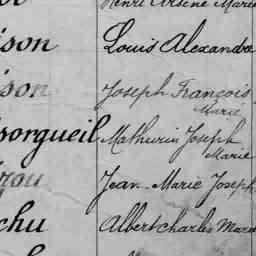 Henri Arsène Marie
ison Louis Alexandre
ison Joseph François
Marie
sorgueil Mathurin Joseph
Marie
Jean-Marie Joseph
chu Albert Charles Marie